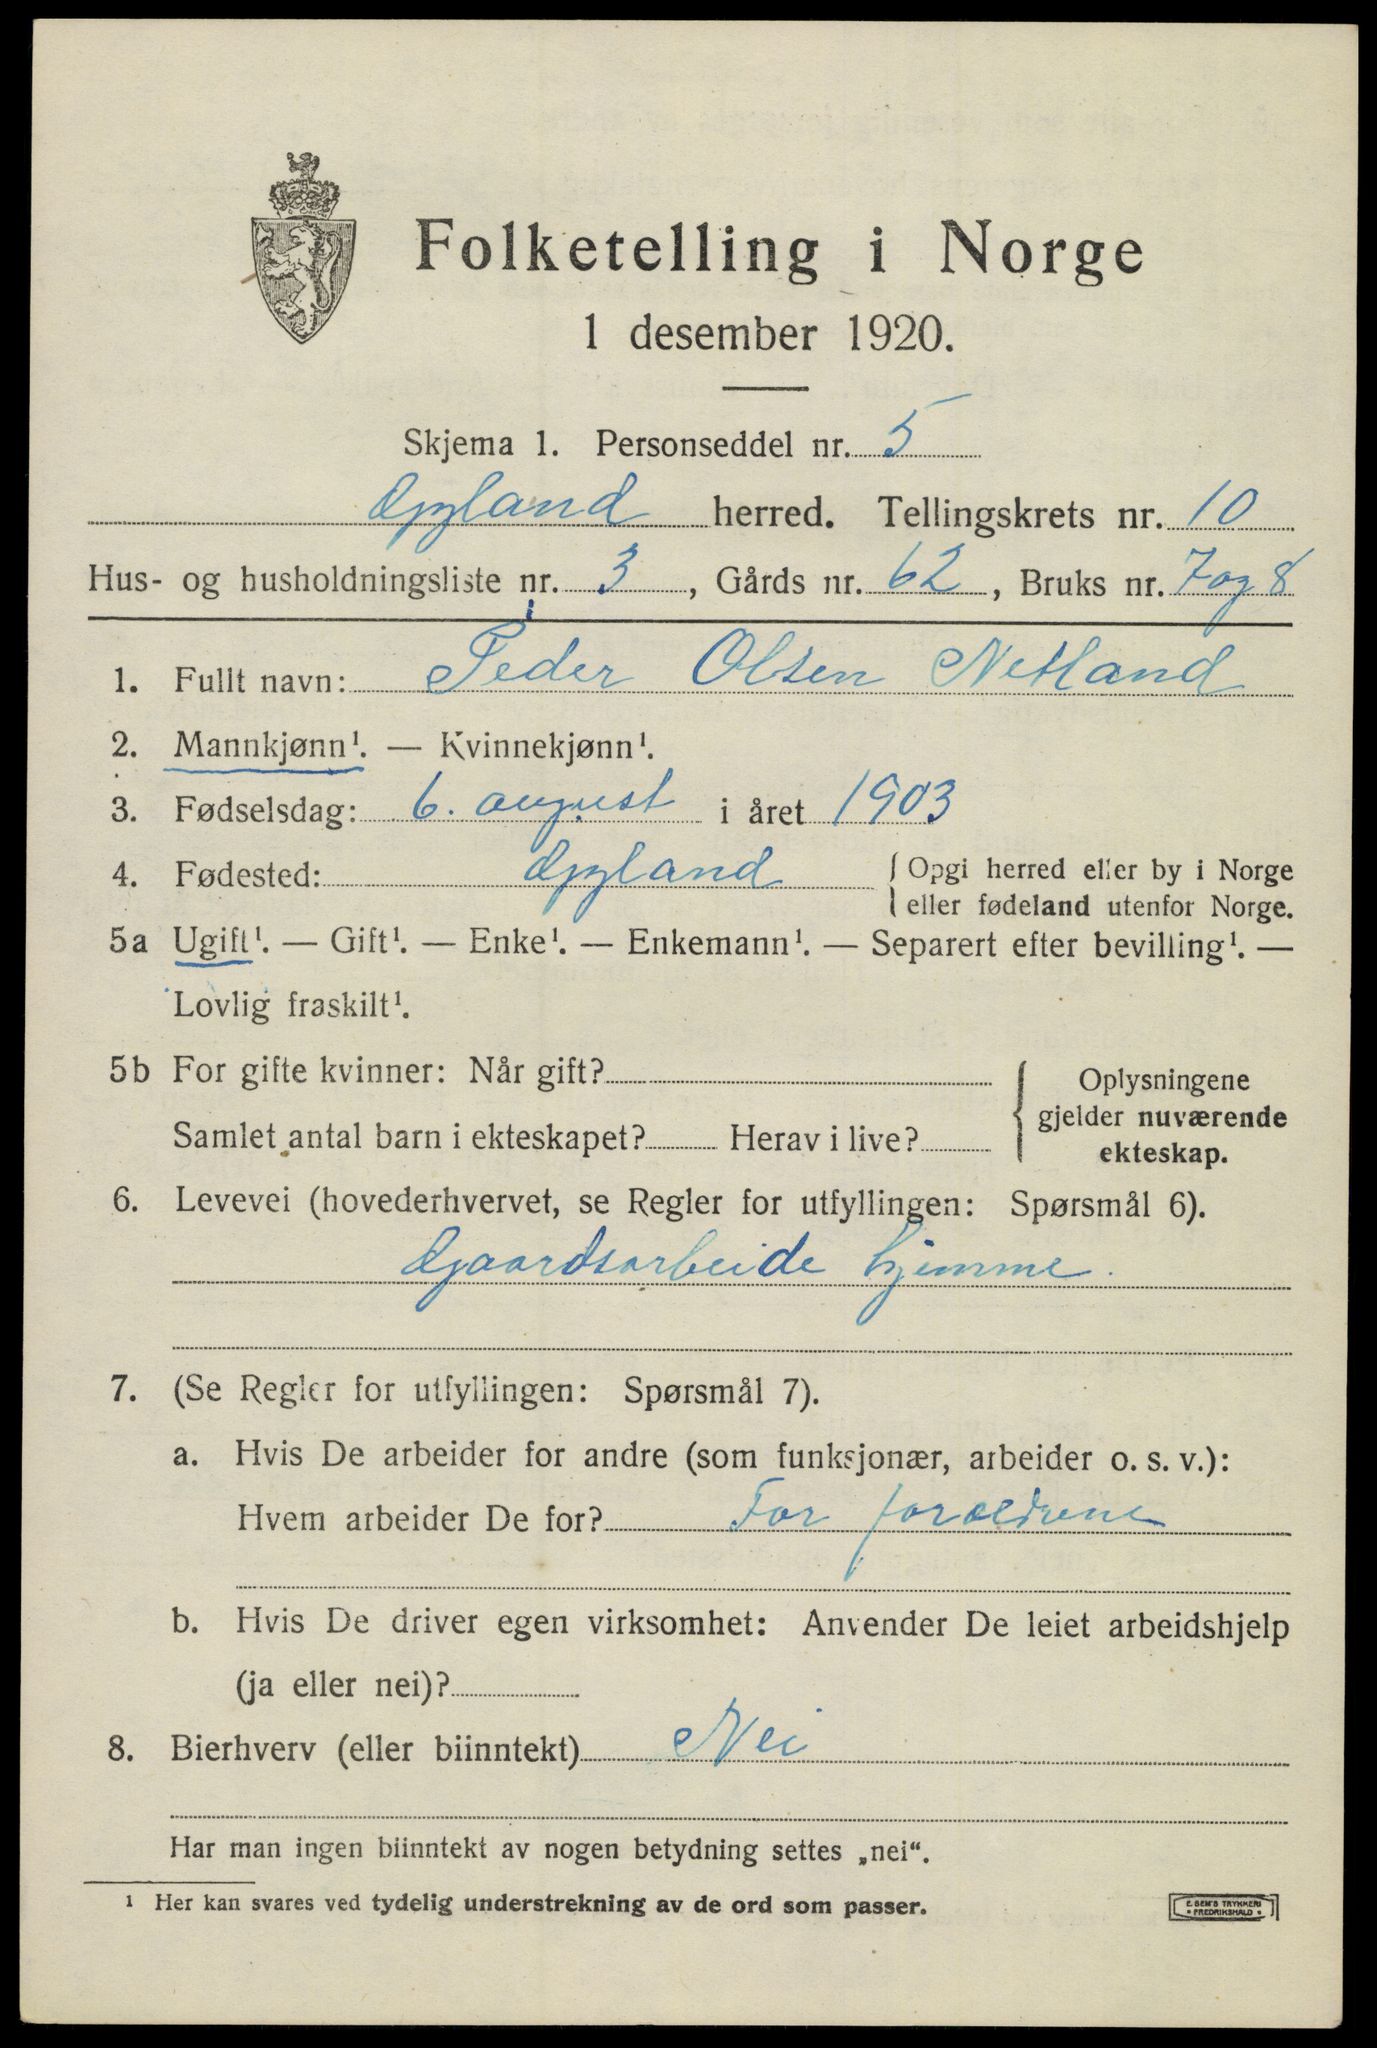 Folketelling i Norge
1 desember 1920.
Skjema 1. Personseddel nr. 5
Gyland herred. Tellingskrets nr. 10
Hus- og husholdningsliste nr. 3, Gårds nr. 62, Bruks nr. 7 og 8
1. Fullt navn: Peder Olsen Netland
2. Mannkjønn¹. — Kvinnekjønn¹.
3. Fødselsdag: 6. august i året 1903
4. Fødested: Gyland { Opgi herred eller by i Norge
eller fødeland utenfor Norge.
5a Ugift¹. — Gift¹. — Enke¹. — Enkemann¹. — Separert efter bevilling¹. —
Lovlig fraskilt¹.
5b For gifte kvinner: Når gift? { Oplysningene
gjelder nuværende
Samlet antal barn i ekteskapet? Herav i live?
ekteskap.
6. Levevei (hovederhvervet, se Regler for utfyllingen: Spørsmål 6).
Gaardsarbeide hjemme.
7. (Se Regler for utfyllingen: Spørsmål 7).
a. Hvis De arbeider for andre (som funksjonær, arbeider o. s. v.):
Hvem arbeider De for? For forældrene
b. Hvis De driver egen virksomhet: Anvender De leiet arbeidshjelp
(ja eller nei)?
8. Bierhverv (eller biinntekt) Nei
Har man ingen biinntekt av nogen betydning settes „nei“.
¹ Her kan svares ved tydelig understrekning av de ord som passer.
E. SEM'S TRYKKERI
• FREDRIKSHALD •